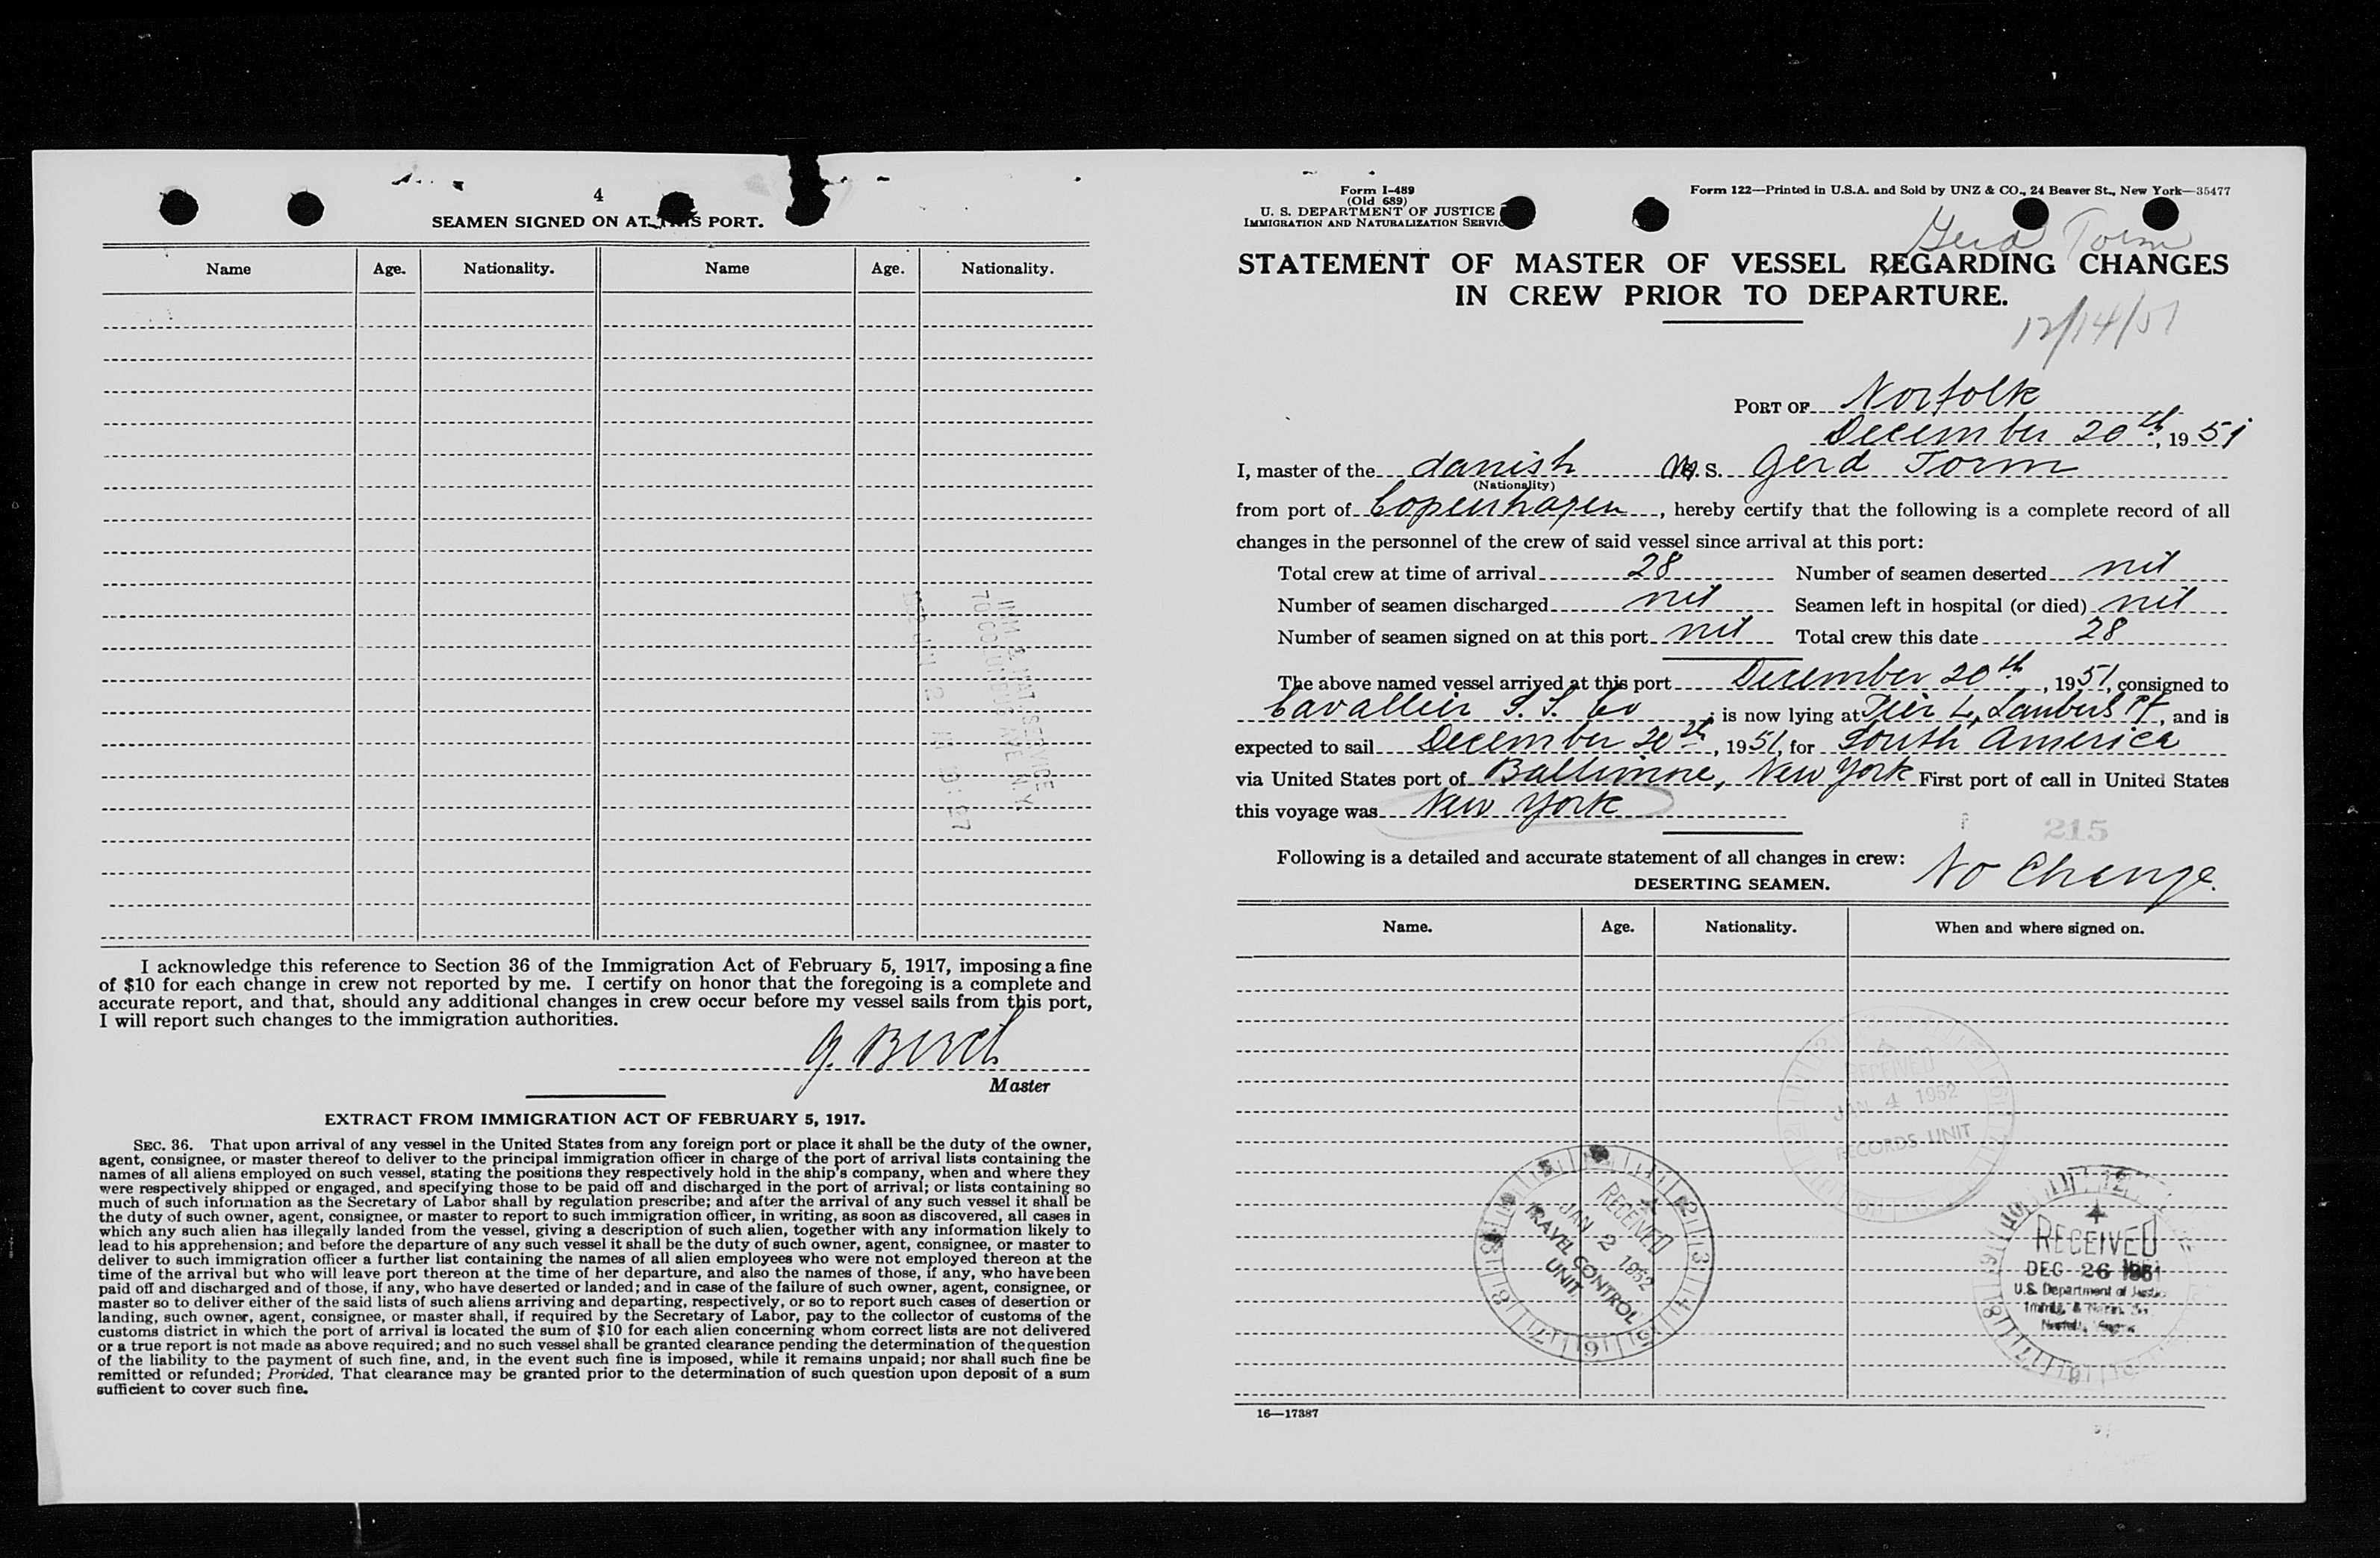 4
SEAMEN SIGNED ON AT THIS PORT.
Name Age. Nationality. Name Age. Nationality.
IMM & NAT. SERVICE
70 COLUMBUS AVE N.Y.
1952 JAN 2
I acknowledge this reference to Section 36 of the Immigration Act of February 5, 1917, imposing a fine
of $10 for each change in crew not reported by me. I certify on honor that the foregoing is a complete and
accurate report, and that, should any additional changes in crew occur before my vessel sails from this port,
I will report such changes to the immigration authorities.
G. Birch
Master
EXTRACT FROM IMMIGRATION ACT OF FEBRUARY 5, 1917.
SEC. 36. That upon arrival of any vessel in the United States from any foreign port or place it shall be the duty of the owner,
agent, consignee, or master thereof to deliver to the principal immigration officer in charge of the port of arrival lists containing the
names of all aliens employed on such vessel, stating the positions they respectively hold in the ship's company, when and where they
were respectively shipped or engaged, and specifying those to be paid off and discharged in the port of arrival; or lists containing so
much of such information as the Secretary of Labor shall by regulation prescribe; and after the arrival of any such vessel it shall be
the duty of such owner, agent, consignee, or master to report to such immigration officer, in writing, as soon as discovered, all cases in
which any such alien has illegally landed from the vessel, giving a description of such alien, together with any information likely to
lead to his apprehension; and before the departure of any such vessel it shall be the duty of such owner, agent, consignee, or master to
deliver to such immigration officer a further list containing the names of all alien employees who were not employed thereon at the
time of the arrival but who will leave port thereon at the time of her departure, and also the names of those, if any, who have been
paid off and discharged and of those, if any, who have deserted or landed; and in case of the failure of such owner, agent, consignee, or
master so to deliver either of the said lists of such aliens arriving and departing, respectively, or so to report such cases of desertion or
landing, such owner, agent, consignee, or master shall, if required by the Secretary of Labor, pay to the collector of customs of the
customs district in which the port of arrival is located the sum of $10 for each alien concerning whom correct lists are not delivered
or a true report is not made as above required; and no such vessel shall be granted clearance pending the determination of the question
of the liability to the payment of such fine, and, in the event such fine is imposed, while it remains unpaid; nor shall such fine be
remitted or refunded; Provided, That clearance may be granted prior to the determination of such question upon deposit of a sum
sufficient to cover such fine.
Form I-489
(Old 689)
U. S. DEPARTMENT OF JUSTICE
IMMIGRATION AND NATURALIZATION SERVIC
Form 122—Printed in U.S.A. and Sold by UNZ & CO., 24 Beaver St., New York—35477
Gerd Torm
STATEMENT OF MASTER OF VESSEL REGARDING CHANGES
IN CREW PRIOR TO DEPARTURE.
12/14/51
PORT OF Norfolk
December 20th, 1951
I, master of the danish M. S. Gerd Torm
(Nationality)
from port of Copenhagen, hereby certify that the following is a complete record of all
changes in the personnel of the crew of said vessel since arrival at this port:
Total crew at time of arrival 28 Number of seamen deserted nil
Number of seamen discharged nil Seamen left in hospital (or died) nil
Number of seamen signed on at this port nil Total crew this date 28
The above named vessel arrived at this port December 20th, 1951, consigned to
Cavallier S. S. Co ; is now lying at Pier L, Lamberts Pt, and is
expected to sail December 20th, 1951, for South America
via United States port of Baltimore, New York First port of call in United States
this voyage was New York
215
Following is a detailed and accurate statement of all changes in crew: No Change.
DESERTING SEAMEN.
Name. Age. Nationality. When and where signed on.
RECEIVED
JAN 4 1952
RECORDS UNIT
RECEIVED
JAN 2 1952
TRAVEL CONTROL
UNIT
RECEIVED
DEC 26 1951
U.S. Department of Justice
16—17387